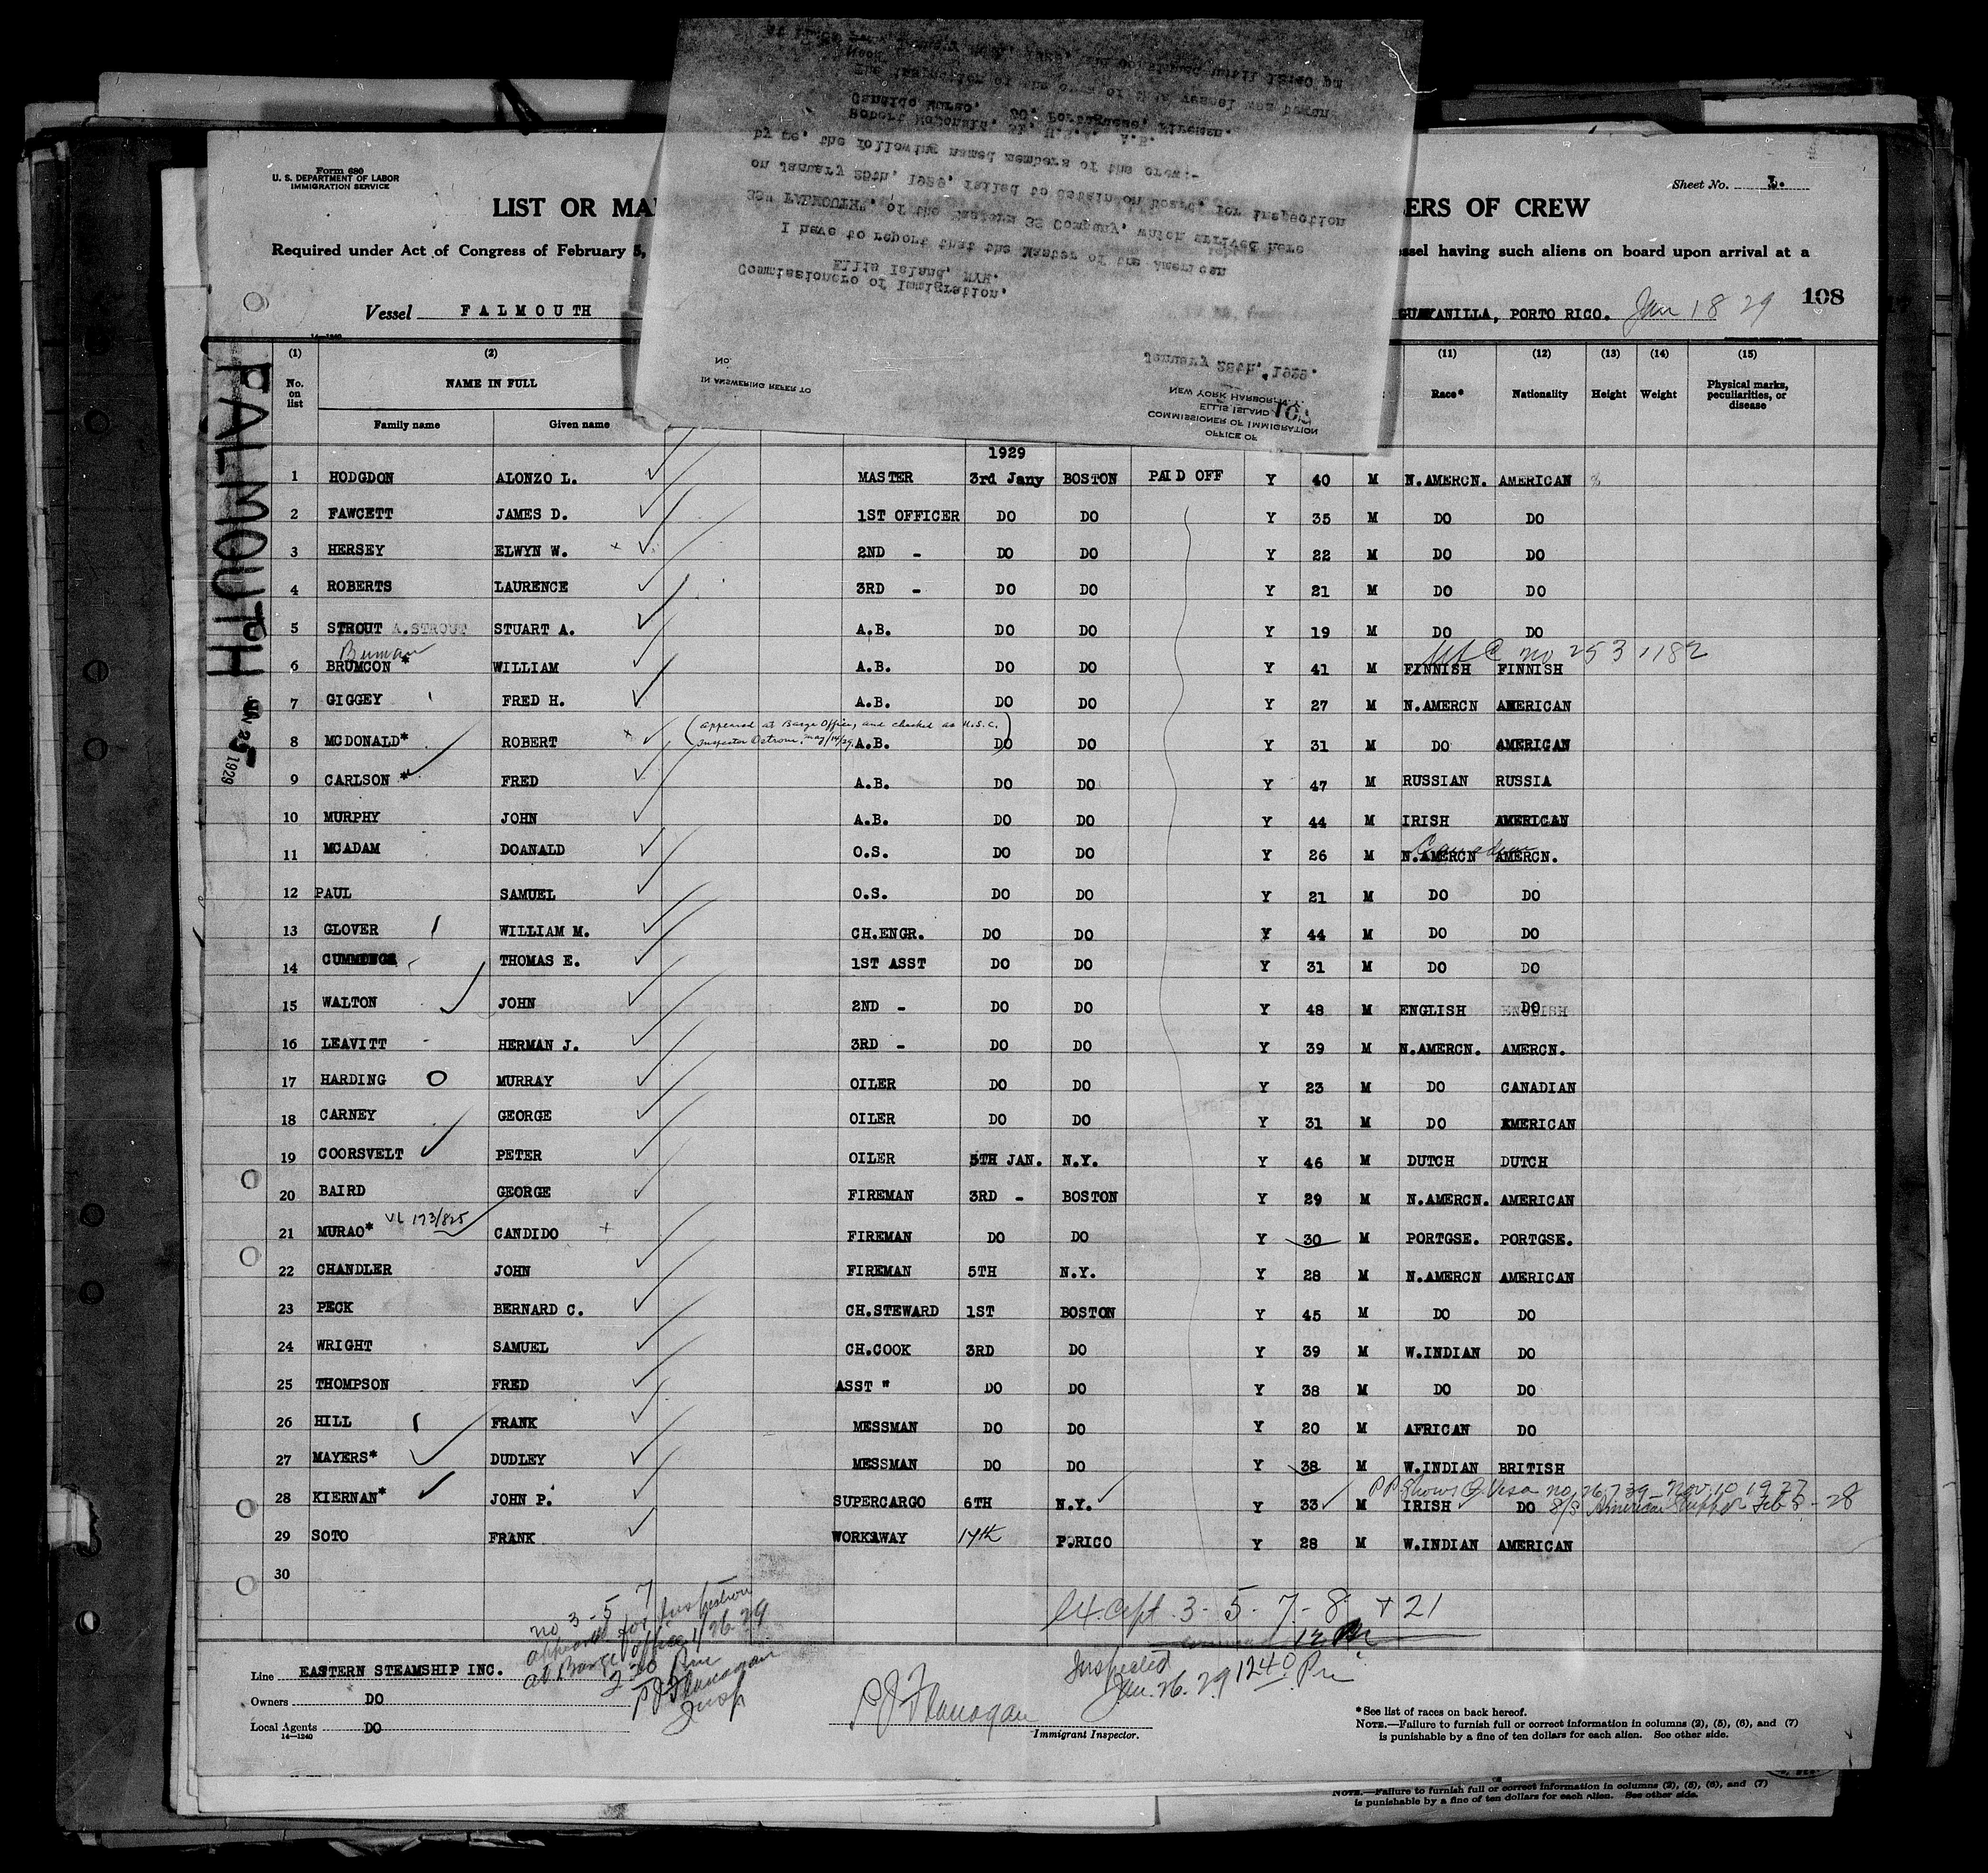 Form 680
U. S. DEPARTMENT OF LABOR
IMMIGRATION SERVICE
Sheet No. 1.
LIST OR MA ERS OF CREW
Required under Act of Congress of February 5, ssel having such aliens on board upon arrival at a
Vessel FALMOUTH GUAYANILLA, PORTO RICO. Jan 18 29 108
14—1240
OFFICE OF
COMMISSIONER OF IMMIGRATION
ELLIS ISLAND
NEW YORK HARBOR, N.Y.
IN ANSWERING REFER TO
No.
January 28th, 1929.
Commissionero of Immigration,
Ellis Island, NYH.
I have to report that the Master of the American
SS" FALMOUTH", of the Eastern SS Company, which arrived here
on January 25th, 1929, failed to detain on board, for inspection
by me, the following named members of the crew:-
Robert McDonald, 31, U.S. A.B.
Candido Murao, 30, Portuguese, Fireman.
The inspection of the crew of this vessel was begun
until 12:40 pm
FALMOUTH
JAN 25 1929
(1) (2) (11) (12) (13) (14) (15)
No. on list NAME IN FULL Race* Nationality Height Weight Physical marks, peculiarities, or disease
Family name Given name
1929
1 HODGDON ALONZO L. MASTER 3rd Jany BOSTON PAID OFF Y 40 M N.AMERCN. AMERICAN
2 FAWCETT JAMES D. 1ST OFFICER DO DO Y 35 M DO DO
3 HERSEY ELWYN W. 2ND - DO DO Y 22 M DO DO
4 ROBERTS LAURENCE 3RD - DO DO Y 21 M DO DO
5 STROUT A.STROUT STUART A. A.B. DO DO Y 19 M DO DO
Buman no 2531182
6 BRUMCON * WILLIAM A.B. DO DO Y 41 M FINNISH FINNISH
7 GIGGEY FRED H. A.B. DO DO Y 27 M N.AMERCN AMERICAN
(appeared at Barge Office, and checked as U.S.C.
Inspector Ostrom. May/14/29)
8 MCDONALD* ROBERT A.B. DO DO Y 31 M DO AMERICAN
9 CARLSON * FRED A.B. DO DO Y 47 M RUSSIAN RUSSIA
10 MURPHY JOHN A.B. DO DO Y 44 M IRISH AMERICAN
Canadian
11 MCADAM DOANALD O.S. DO DO Y 26 M N.AMERCN AMERCN.
12 PAUL SAMUEL O.S. DO DO Y 21 M DO DO
13 GLOVER WILLIAM M. CH.ENGR. DO DO Y 44 M DO DO
14 CUMMINGS THOMAS E. 1ST ASST DO DO Y 31 M DO DO
15 WALTON JOHN 2ND - DO DO Y 48 M ENGLISH DO
16 LEAVITT HERMAN J. 3RD - DO DO Y 39 M N.AMERCN. AMERCN.
17 HARDING O MURRAY OILER DO DO Y 23 M DO CANADIAN
18 CARNEY GEORGE OILER DO DO Y 31 M DO AMERICAN
19 COORSVELT PETER OILER 5TH JAN. N.Y. Y 46 M DUTCH DUTCH
20 BAIRD GEORGE FIREMAN 3RD - BOSTON Y 29 M N.AMERCN. AMERICAN
VL 173/825
21 MURAO* CANDIDO FIREMAN DO DO Y 30 M PORTGSE. PORTGSE.
22 CHANDLER JOHN FIREMAN 5TH N.Y. Y 28 M N.AMERCN AMERICAN
23 PECK BERNARD C. CH.STEWARD 1ST BOSTON Y 45 M DO DO
24 WRIGHT SAMUEL CH.COOK 3RD DO Y 39 M W.INDIAN DO
25 THOMPSON FRED ASST " DO DO Y 38 M DO DO
26 HILL FRANK MESSMAN DO DO Y 20 M AFRICAN DO
27 MAYERS* DUDLEY MESSMAN DO DO Y 38 M W.INDIAN BRITISH
PP Shows Q. Visa no. 26739 - Nov. 10 1927
28 KIERNAN* JOHN P. SUPERCARGO 6TH N.Y. Y 33 M IRISH DO S/S American Shipper Feb 5 - 28
29 SOTO FRANK WORKAWAY 17th P.RICO Y 28 M W.INDIAN AMERICAN
30
no 3 - 5 7
appeared for Inspection
at Barge Office 1/26 29
2 30 Pm
P J Flanagan
Insp
Except 3 - 5 - 7 - 8 + 21
12 M
Inspected
Jan. 26. 29 12 40 Pm
Line EASTERN STEAMSHIP INC.
Owners DO
Local Agents DO
14—1240
P J Flanagan
Immigrant Inspector.
* See list of races on back hereof.
NOTE.—Failure to furnish full or correct information in columns (2), (5), (6), and (7)
is punishable by a fine of ten dollars for each alien. See other side.
NOTE.—Failure to furnish full or correct information in columns (2), (5), (6), and (7)
is punishable by a fine of ten dollars for each alien. See other side.